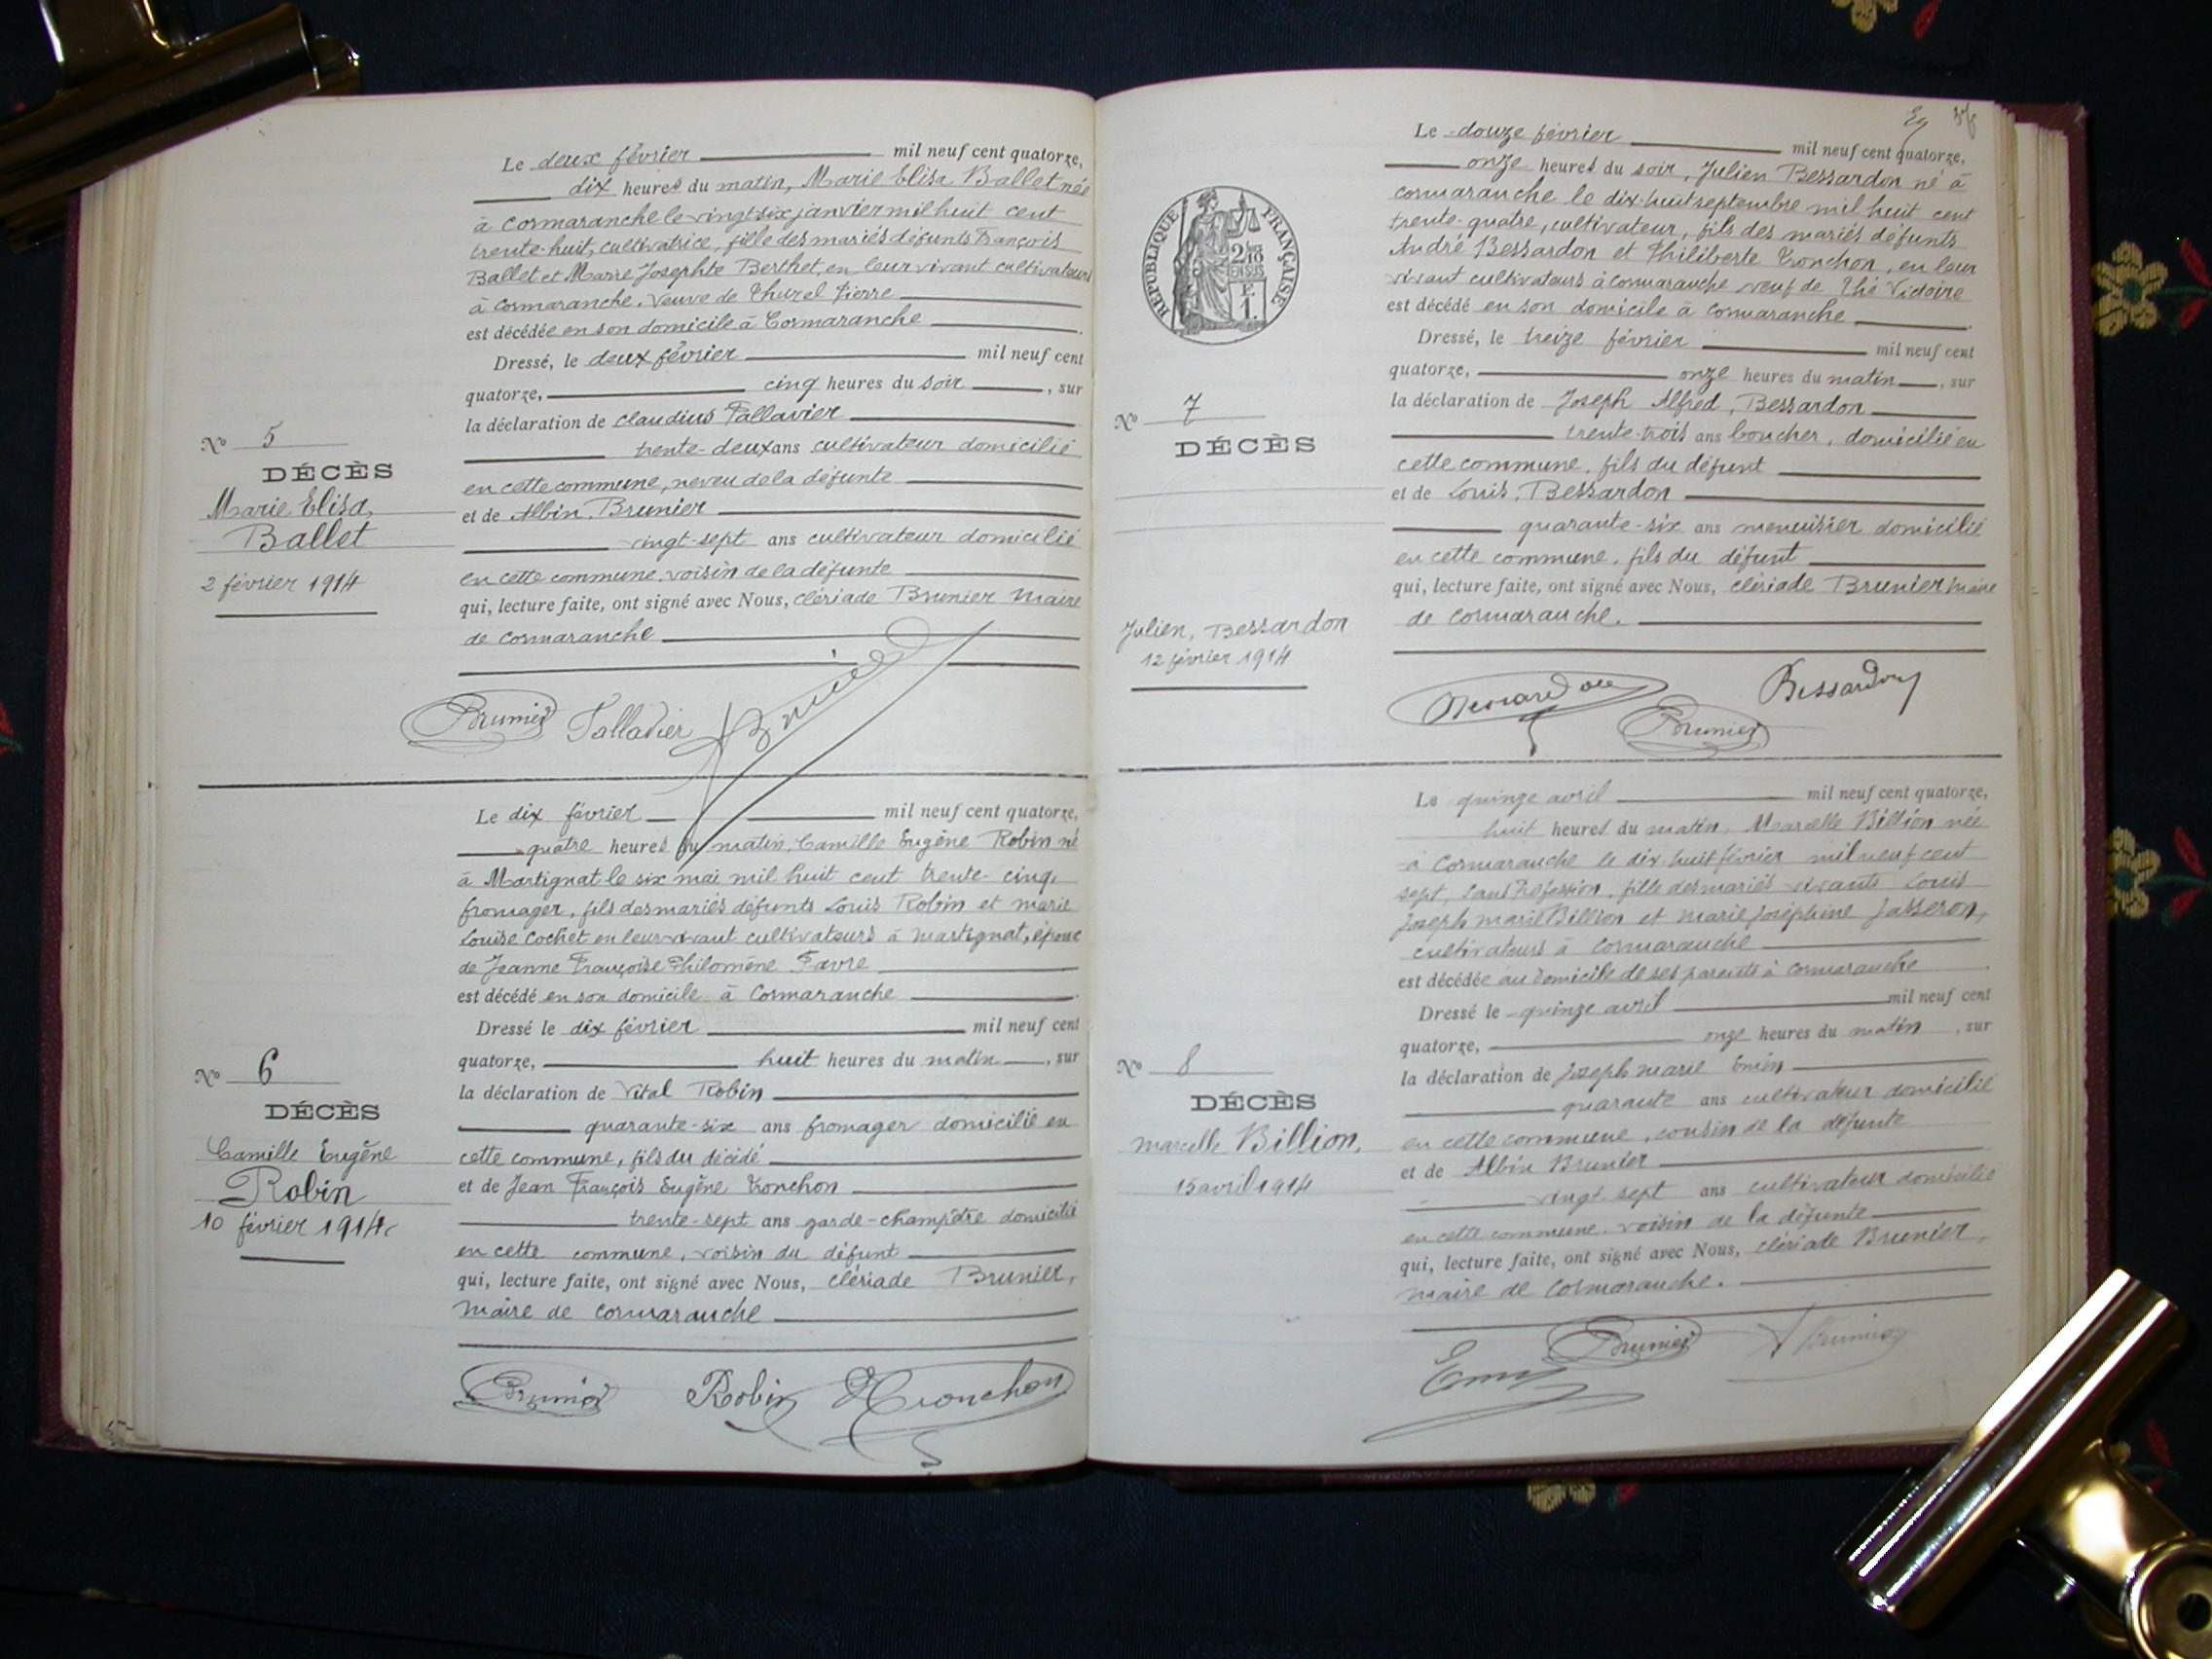 Le deux février mil neuf cent quatorze,
dix heures du matin, Marie Elisa Ballet née
à Cormaranche le vingt six janvier mil huit cent
trente-huit, cultivatrice, fille des mariés défunts François
Ballet et Marie Josephte Berthet, en leur vivant cultivateurs
à Cormaranche. Veuve de Pierre
est décédée en son domicile à Cormaranche
Dressé, le deux février mil neuf cent
quatorze, cinq heures du soir, sur
la déclaration de Claudius Tallavier
trente-deux ans cultivateur domicilié
en cette commune, neveu de la défunte
et de Albin, Brunier
vingt-sept ans cultivateur domicilié
en cette commune, voisin de la défunte
qui, lecture faite, ont signé avec Nous, Clériade Brunier Maire
de Cormaranche
N° 5
DÉCÈS
Marie Elisa,
Ballet
2 février 1914
Brunier Tallavier ABrunier
Le dix février mil neuf cent quatorze,
quatre heures du matin, Camille Eugène Robin né
à Martignat le six mai mil huit cent trente-cinq,
fromager, fils des mariés défunts Louis Robin et marie
Louise Cochet en leur vivant cultivateurs à Martignat, époux
de Jeanne Françoise Philomène Favre
est décédé en son domicile à Cormaranche
Dressé le dix février mil neuf cent
quatorze, huit heures du matin, sur
la déclaration de Vital Robin
quarante-six ans fromager domicilié en
cette commune, fils du décédé
et de Jean François Eugène Tronchon
trente-sept ans garde-champêtre domicilié
en cette commune, voisin du défunt
qui, lecture faite, ont signé avec Nous, Clériade Brunier,
maire de Cormaranche
N° 6
DÉCÈS
Camille Eugène
Robin
10 février 1914
Brunier Robin Tronchon
RÉPUBLIQUE FRANÇAISE
2/10
EN SUS
F.
1.
Le douze février mil neuf cent quatorze,
onze heures du soir, Julien Bessardon né à
cormaranche le dix-huit septembre mil huit cent
trente-quatre, cultivateur, fils des mariés défunts
André Bessardon et Philiberte Tronchon, en leur
vivant cultivateurs à cormaranche veuf de Victoire
est décédé en son domicile à Cormaranche
Dressé, le treize février mil neuf cent
quatorze, onze heures du matin, sur
la déclaration de Joseph Alfred, Bessardon
trente-trois ans boucher, domicilié en
cette commune, fils du défunt
et de Louis, Bessardon
quarante-six ans menuisier domicilié
en cette commune, fils du défunt
qui, lecture faite, ont signé avec Nous, Clériade Brunier maire
de Cormaranche.
N° 7
DÉCÈS
Julien, Bessardon
12 février 1914
Bessardon Bessardon
Brunier
Le quinze avril mil neuf cent quatorze,
huit heures du matin, Marcelle Billion née
à Cormaranche le dix-huit février mil neuf cent
sept, sans Profession, fille des mariés vivants Louis
Joseph marie Billion et Marie Joséphine Jasseron,
cultivateurs à Cormaranche
est décédée au domicile de ses parents à Cormaranche
Dressé le quinze avril mil neuf cent
quatorze, onze heures du matin, sur
la déclaration de Joseph marie
quarante ans cultivateur domicilié
en cette commune, cousin de la défunte
et de Albin Brunier
vingt sept ans cultivateur domicilié
en cette commune, voisin de la défunte
qui, lecture faite, ont signé avec Nous, Clériade Brunier,
maire de Cormaranche.
N° 8
DÉCÈS
Marcelle Billion,
15 avril 1914
Brunier ABrunier